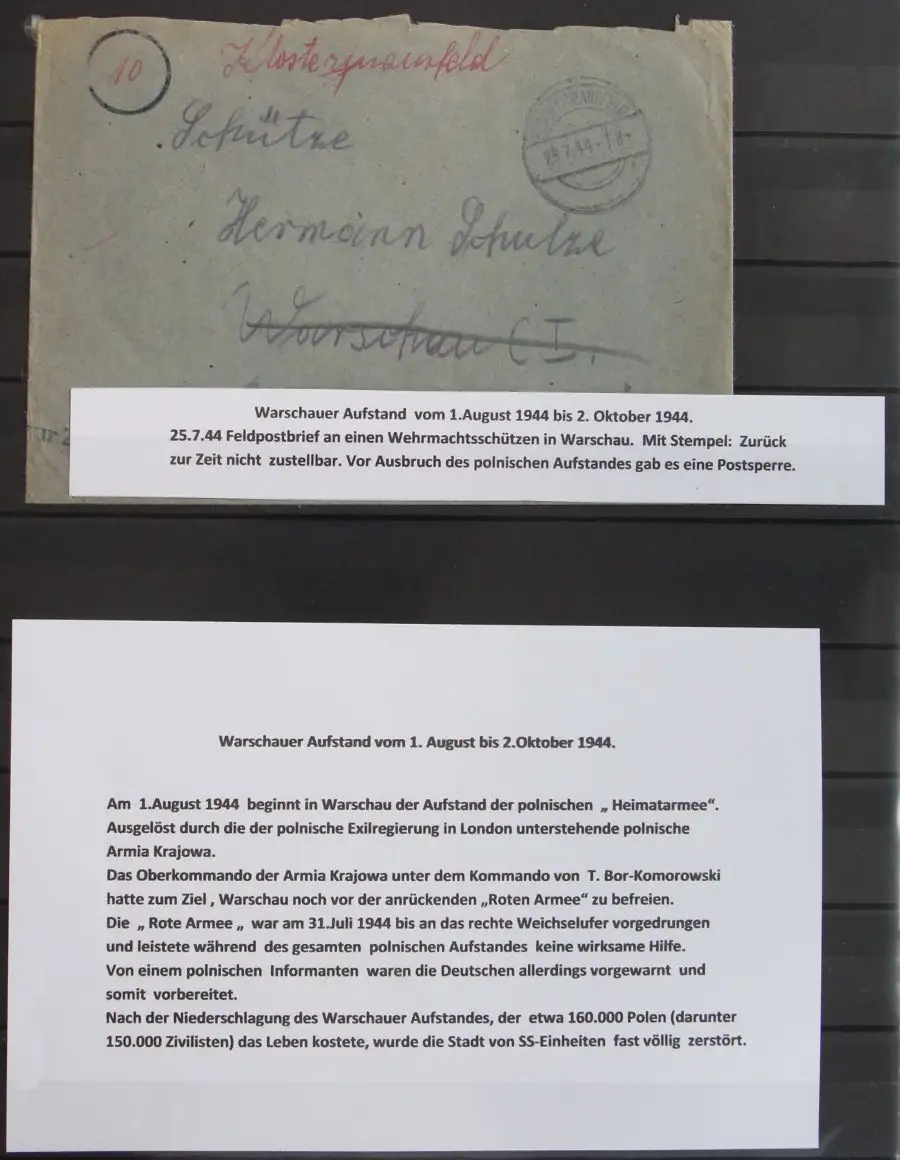 10
Klostermansfeld
Schütze
Hermann Schulze
Warschau C I.
Warschauer Aufstand vom 1.August 1944 bis 2. Oktober 1944.
25.7.44 Feldpostbrief an einen Wehrmachtsschützen in Warschau. Mit Stempel: Zurück
zur Zeit nicht zustellbar. Vor Ausbruch des polnischen Aufstandes gab es eine Postsperre.
Warschauer Aufstand vom 1. August bis 2.Oktober 1944.
Am 1.August 1944 beginnt in Warschau der Aufstand der polnischen „ Heimatarmee“.
Ausgelöst durch die der polnische Exilregierung in London unterstehende polnische
Armia Krajowa.
Das Oberkommando der Armia Krajowa unter dem Kommando von T. Bor-Komorowski
hatte zum Ziel , Warschau noch vor der anrückenden „Roten Armee“ zu befreien.
Die „ Rote Armee „ war am 31.Juli 1944 bis an das rechte Weichselufer vorgedrungen
und leistete während des gesamten polnischen Aufstandes keine wirksame Hilfe.
Von einem polnischen Informanten waren die Deutschen allerdings vorgewarnt und
somit vorbereitet.
Nach der Niederschlagung des Warschauer Aufstandes, der etwa 160.000 Polen (darunter
150.000 Zivilisten) das Leben kostete, wurde die Stadt von SS-Einheiten fast völlig zerstört.